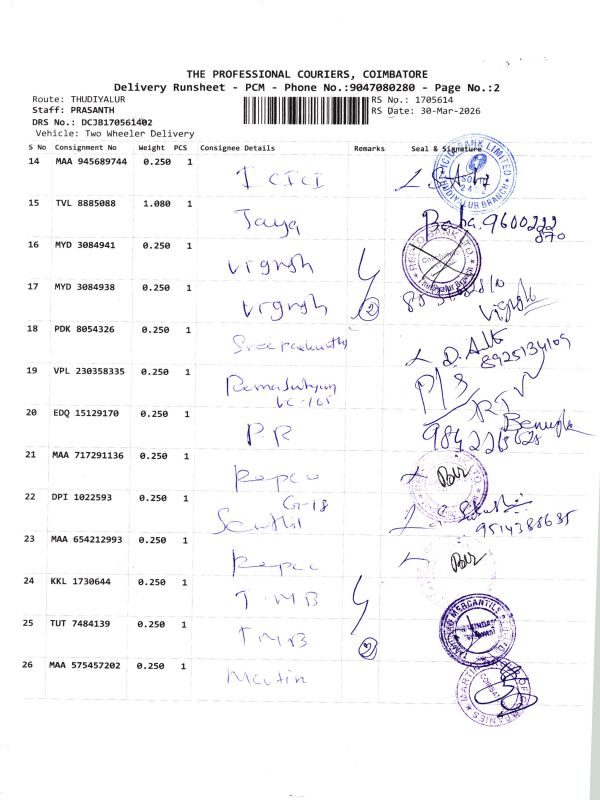 THE PROFESSIONAL COURIERS, COIMBATORE
Delivery Runsheet - PCM - Phone No.:9047080280 - Page No.:2
Route: THUDIYALUR
RS No.: 1705614
Staff: PRASANTH
RS Date: 30-Mar-2026
DRS No.: DCJB170561402
Vehicle: Two Wheeler Delivery
S No Consignment No Weight PCS Consignee Details Remarks Seal & Signature
14 MAA 945689744 0.250 1 ICICI
15 TVL 8885088 1.080 1 Jaya Baba. 9600222
870
16 MYD 3084941 0.250 1 vignesh
17 MYD 3084938 0.250 1 vignesh 2 Vignesh
18 PDK 8054326 0.250 1
8925134109
19 VPL 230358335 0.250 1 P/S
20 EDQ 15129170 0.250 1 PR
21 MAA 717291136 0.250 1 Repco
22 DPI 1022593 0.250 1 Senthil G-18
9514388635
23 MAA 654212993 0.250 1 Repco
24 KKL 1730644 0.250 1 TMB
25 TUT 7484139 0.250 1 TMB
26 MAA 575457202 0.250 1 Martin